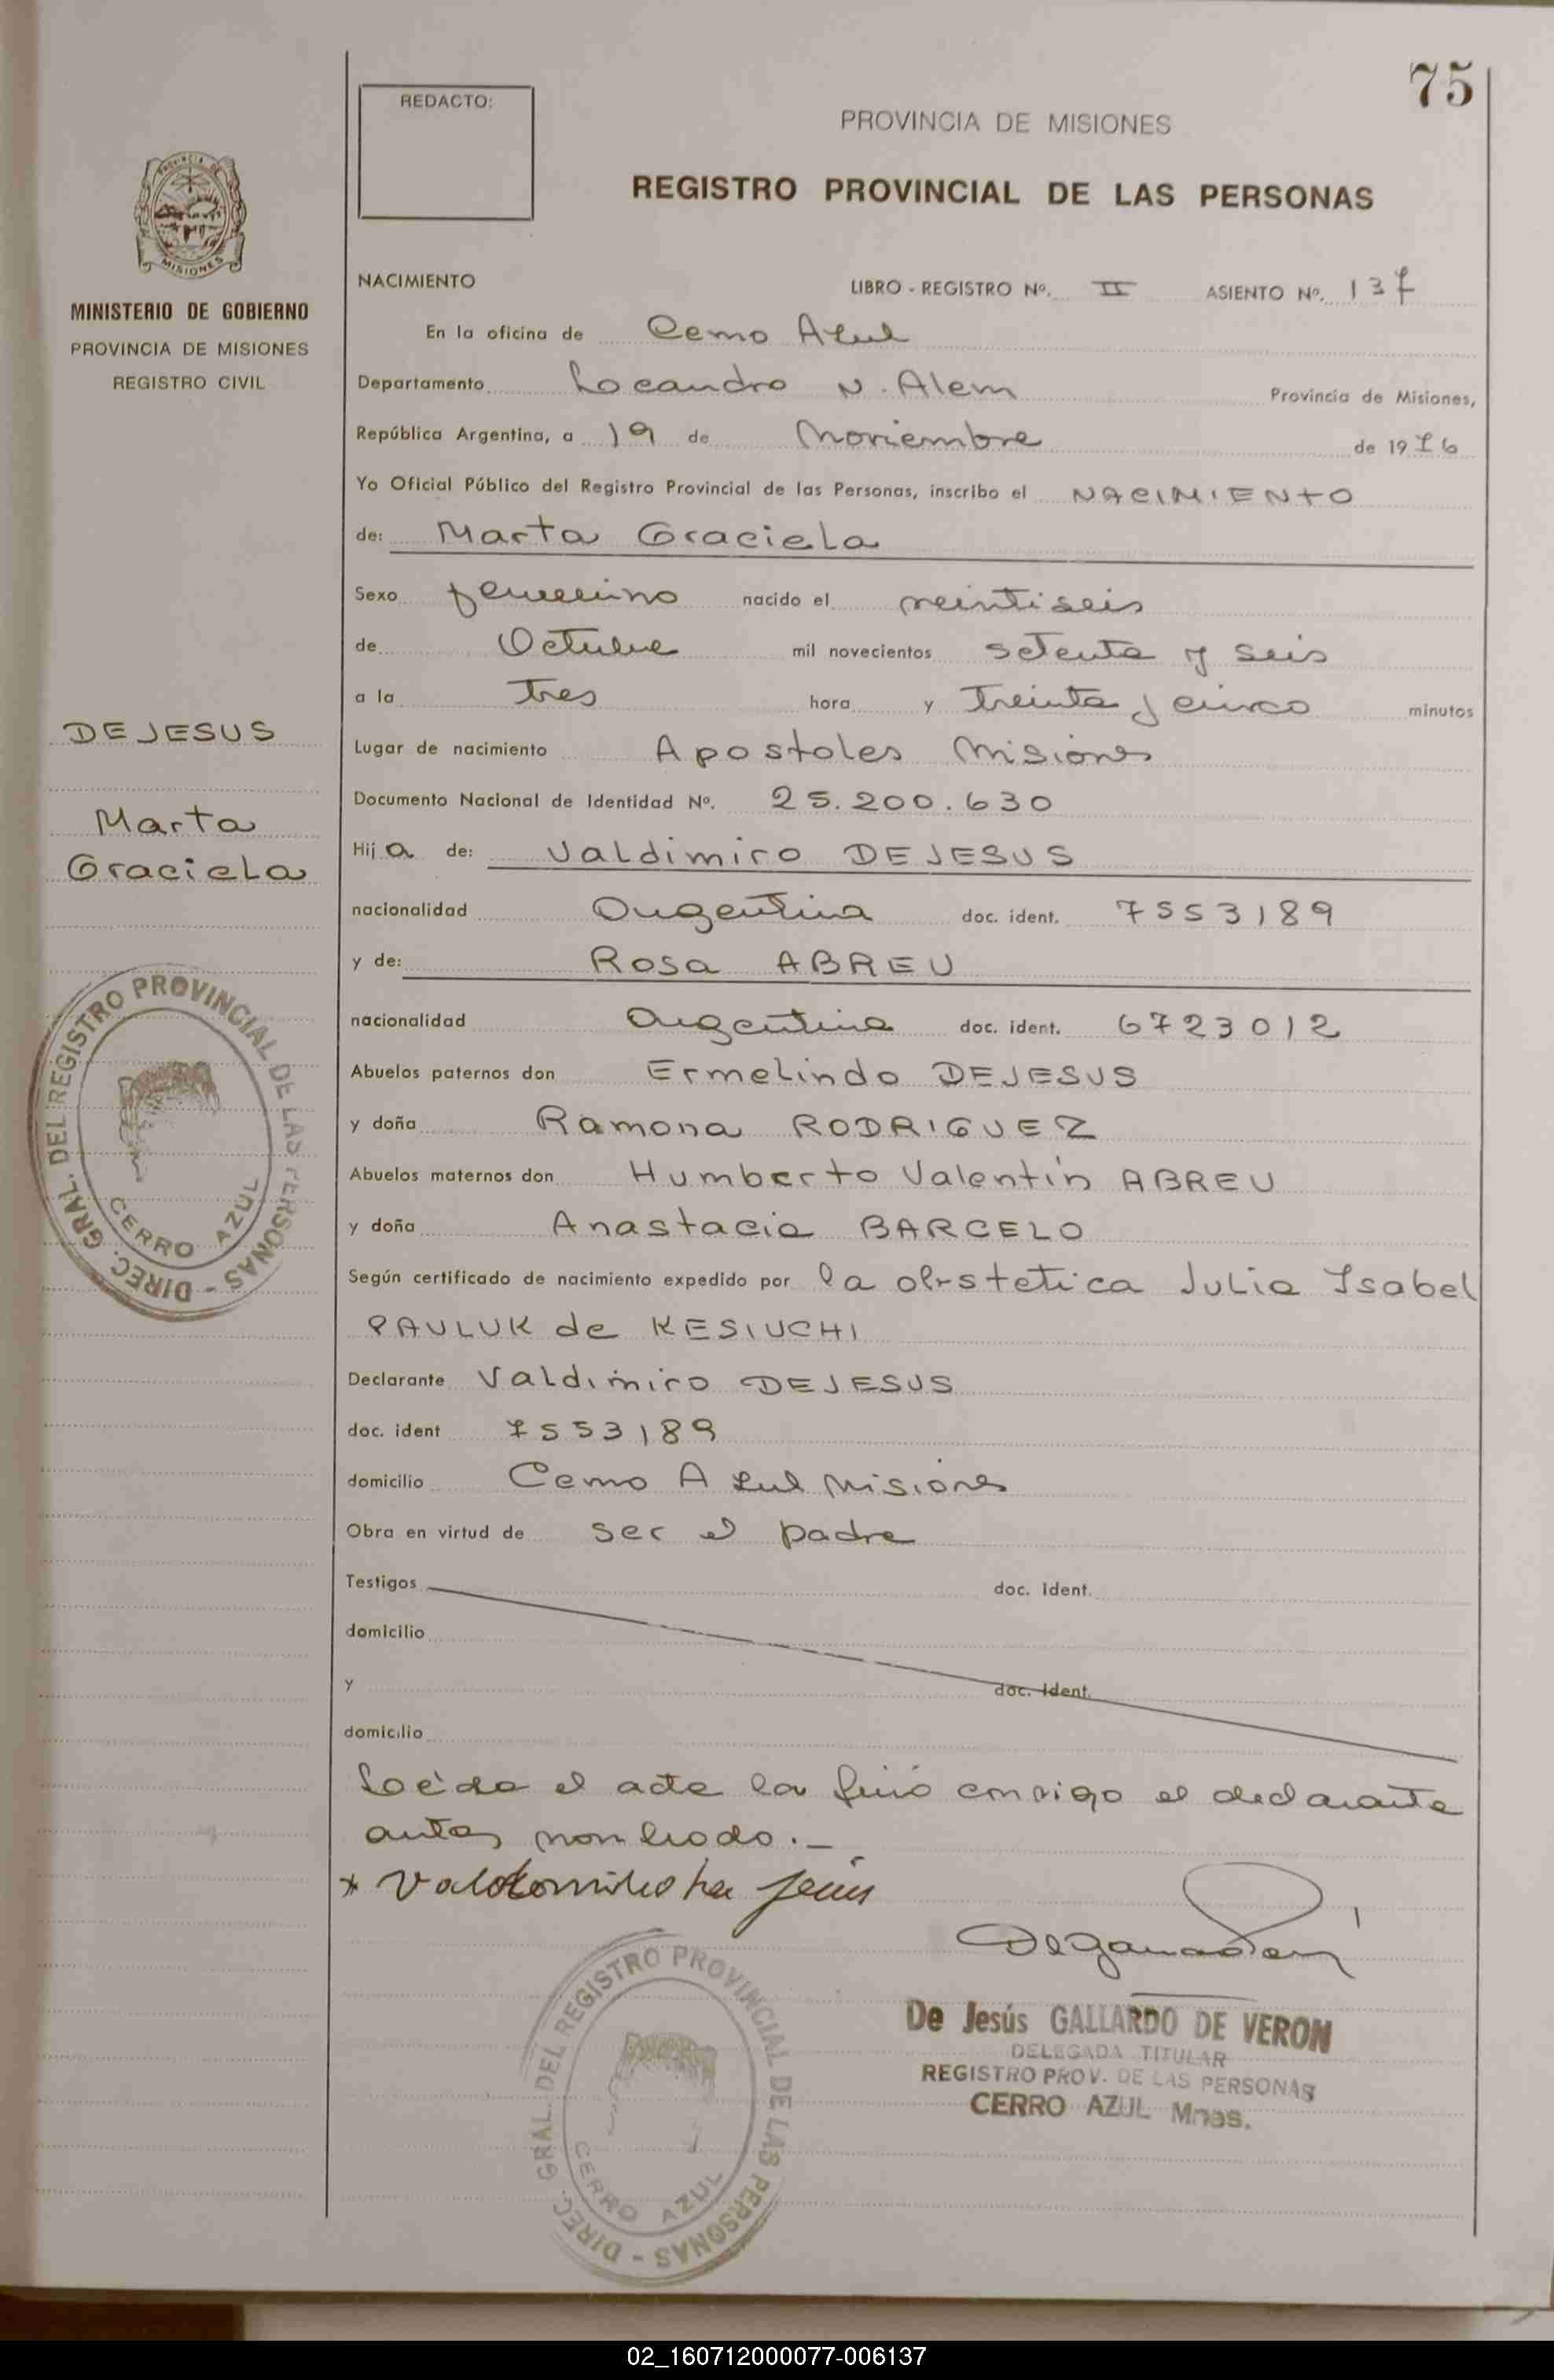 75
REDACTO:
PROVINCIA DE MISIONES
REGISTRO PROVINCIAL DE LAS PERSONAS
PROVINCIA DE
MISIONES
MINISTERIO DE GOBIERNO
PROVINCIA DE MISIONES
REGISTRO CIVIL
NACIMIENTO LIBRO - REGISTRO Nº. II ASIENTO Nº. 137
En la oficina de Cerro Azul
Departamento Leandro N. Alem Provincia de Misiones,
República Argentina, a 19 de Noviembre de 1976
Yo Oficial Público del Registro Provincial de las Personas, inscribo el NACIMIENTO
de: Marta Graciela
Sexo femenino nacido el veintiseis
de Octubre mil novecientos setenta y seis
a la tres hora y treinta y cinco minutos
Lugar de nacimiento Apostoles Misiones
Documento Nacional de Identidad Nº. 25.200.630
Hija de: Valdimiro DEJESUS
nacionalidad Argentina doc. ident. 7553189
y de: Rosa ABREU
nacionalidad Argentina doc. ident. 6723012
Abuelos paternos don Ermelindo DEJESUS
y doña Ramona RODRIGUEZ
Abuelos maternos don Humberto Valentín ABREU
y doña Anastacia BARCELO
Según certificado de nacimiento expedido por la obstetica Julia Isabel
PAULUK de KESIUCHI
Declarante Valdimiro DEJESUS
doc. ident 7553189
domicilio Cerro Azul Misiones
Obra en virtud de ser el padre
Testigos doc. ident.
domicilio
y doc. ident.
domicilio
Leída el acta la firmó conmigo el declarante
antes nombrado.-
DEJESUS
Marta
Graciela
DIREC. GRAL. DEL REGISTRO PROVINCIAL DE LAS PERSONAS -
CERRO AZUL
DIREC. GRAL. DEL REGISTRO PROVINCIAL DE LAS PERSONAS -
CERRO AZUL
De Jesús GALLARDO DE VERON
DELEGADA TITULAR
REGISTRO PROV. DE LAS PERSONAS
CERRO AZUL Mnes.
02_160712000077-006137